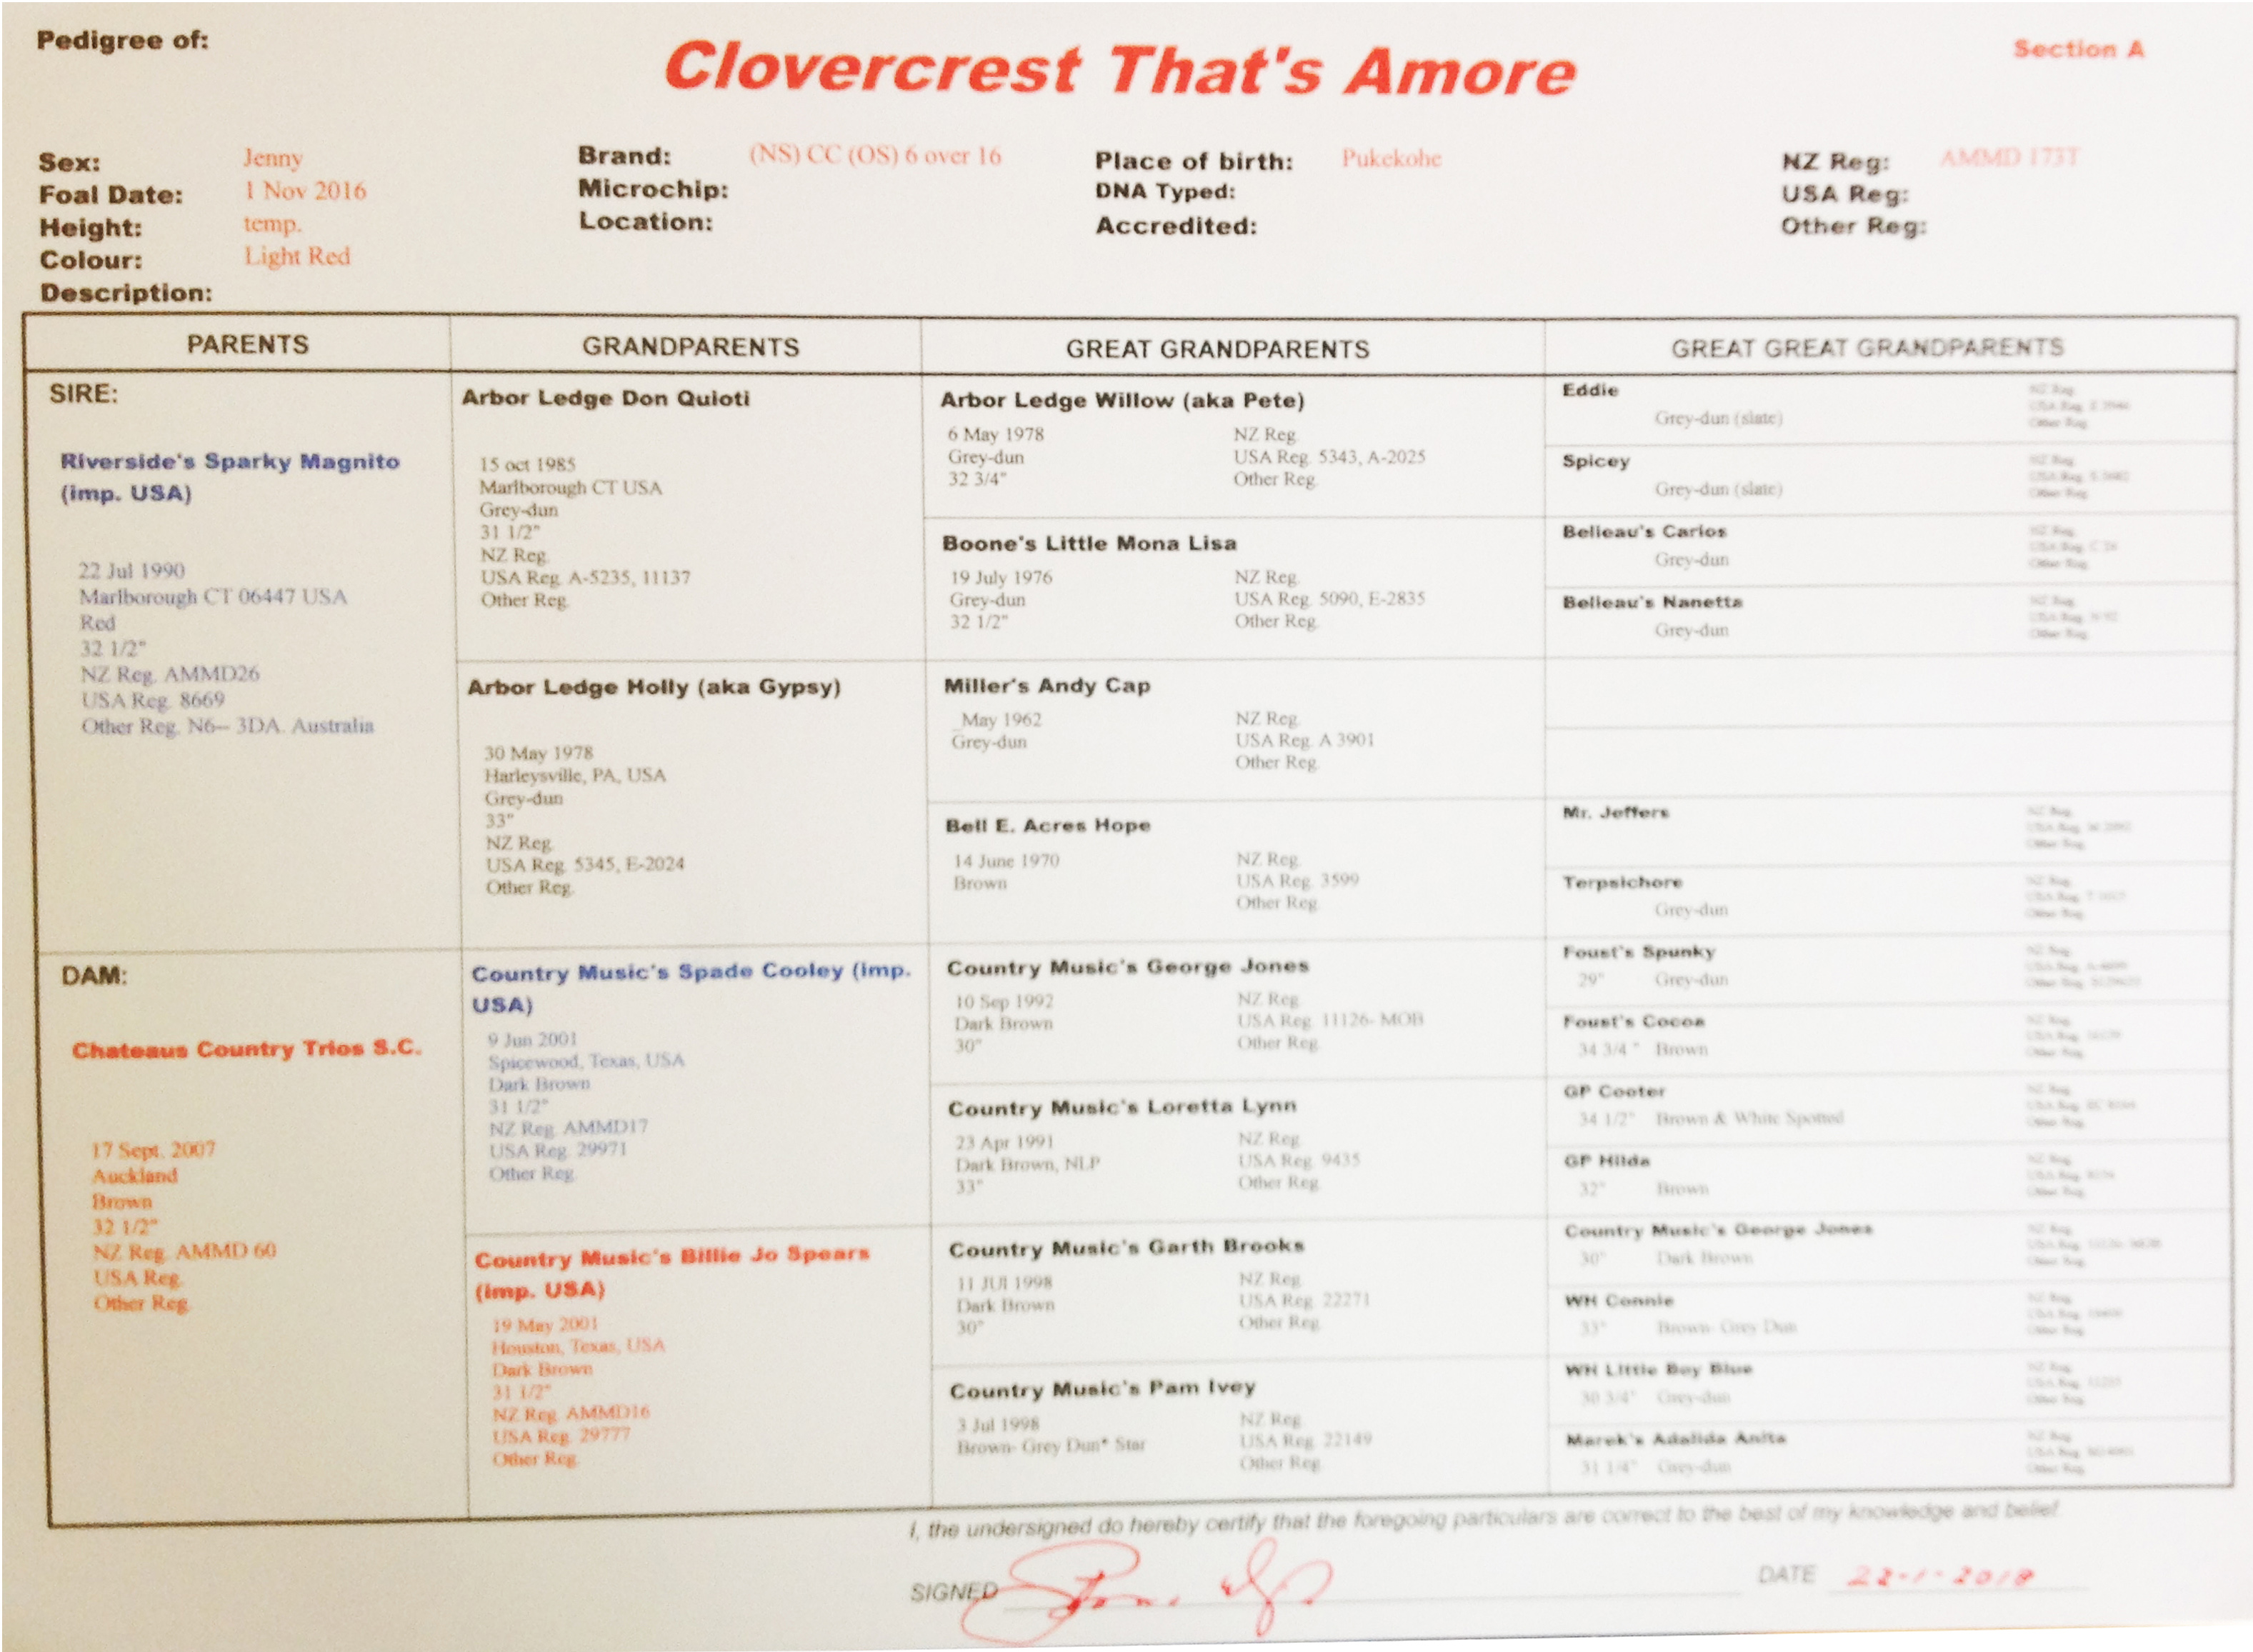 Pedigree of:
Clovercrest That's Amore
Section A
Sex: Jenny
Foal Date: 1 Nov 2016
Height: temp.
Colour: Light Red
Description:
Brand: (NS) CC (OS) 6 over 16
Microchip:
Location:
Place of birth: Pukekohe
DNA Typed:
Accredited:
NZ Reg: AMMD 173T
USA Reg:
Other Reg:
PARENTS
GRANDPARENTS
GREAT GRANDPARENTS
GREAT GREAT GRANDPARENTS
SIRE:
Riverside's Sparky Magnito
(imp. USA)
22 Jul 1990
Marlborough CT 06447 USA
Red
32 1/2"
NZ Reg. AMMD26
USA Reg. 8669
Other Reg. N6-- 3DA. Australia
DAM:
Chateaus Country Trios S.C.
17 Sept. 2007
Auckland
Brown
32 1/2"
NZ Reg. AMMD 60
USA Reg.
Other Reg.
Arbor Ledge Don Quioti
15 oct 1985
Marlborough CT USA
Grey-dun
31 1/2"
NZ Reg.
USA Reg. A-5235, 11137
Other Reg.
Arbor Ledge Holly (aka Gypsy)
30 May 1978
Harleysville, PA, USA
Grey-dun
33"
NZ Reg.
USA Reg. 5345, E-2024
Other Reg.
Country Music's Spade Cooley (imp.
USA)
9 Jun 2001
Spicewood, Texas, USA
Dark Brown
31 1/2"
NZ Reg. AMMD17
USA Reg. 29971
Other Reg.
Country Music's Billie Jo Spears
(imp. USA)
19 May 2001
Houston, Texas, USA
Dark Brown
31 1/2"
NZ Reg. AMMD16
USA Reg. 29777
Other Reg.
Arbor Ledge Willow (aka Pete)
6 May 1978 NZ Reg.
Grey-dun USA Reg. 5343, A-2025
32 3/4" Other Reg.
Boone's Little Mona Lisa
19 July 1976 NZ Reg.
Grey-dun USA Reg. 5090, E-2835
32 1/2" Other Reg.
Miller's Andy Cap
_May 1962 NZ Reg.
Grey-dun USA Reg. A 3901
Other Reg.
Bell E. Acres Hope
14 June 1970 NZ Reg.
Brown USA Reg. 3599
Other Reg.
Country Music's George Jones
10 Sep 1992 NZ Reg.
Dark Brown USA Reg. 11126- MOB
30" Other Reg.
Country Music's Loretta Lynn
23 Apr 1991 NZ Reg.
Dark Brown, NLP USA Reg. 9435
33" Other Reg.
Country Music's Garth Brooks
11 JUl 1998 NZ Reg.
Dark Brown USA Reg. 22271
30" Other Reg.
Country Music's Pam Ivey
3 Jul 1998 NZ Reg.
Brown- Grey Dun* Star USA Reg. 22149
Other Reg.
Eddie NZ Reg.
Grey-dun (slate) USA Reg.
Other Reg.
Spicey NZ Reg.
Grey-dun (slate) USA Reg.
Other Reg.
Belleau's Carlos NZ Reg.
Grey-dun USA Reg.
Other Reg.
Belleau's Nanetta NZ Reg.
Grey-dun USA Reg.
Other Reg.
Mr. Jeffers NZ Reg.
USA Reg.
Other Reg.
Terpsichore NZ Reg.
Grey-dun USA Reg.
Other Reg.
Foust's Spunky NZ Reg.
29" Grey-dun USA Reg.
Other Reg.
Foust's Cocoa NZ Reg.
34 3/4 " Brown USA Reg.
Other Reg.
GP Cooter NZ Reg.
34 1/2" Brown & White Spotted USA Reg.
Other Reg.
GP Hilda NZ Reg.
32" Brown USA Reg.
Other Reg.
Country Music's George Jones NZ Reg.
30" Dark Brown USA Reg.
Other Reg.
WH Connie NZ Reg.
33" Brown- Grey Dun USA Reg.
Other Reg.
WH Little Boy Blue NZ Reg.
30 3/4" Grey-dun USA Reg.
Other Reg.
Marek's Adalida Anita NZ Reg.
31 1/4" Grey-dun USA Reg.
Other Reg.
I, the undersigned do hereby certify that the foregoing particulars are correct to the best of my knowledge and belief.
SIGNED
DATE 22-1-2018